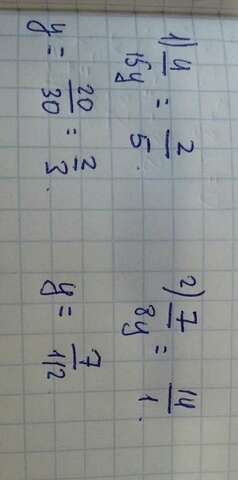 1) 4/15y = 2/5.
y = 20/30 = 2/3.
2) 7/8y = 14/1.
y = 7/112